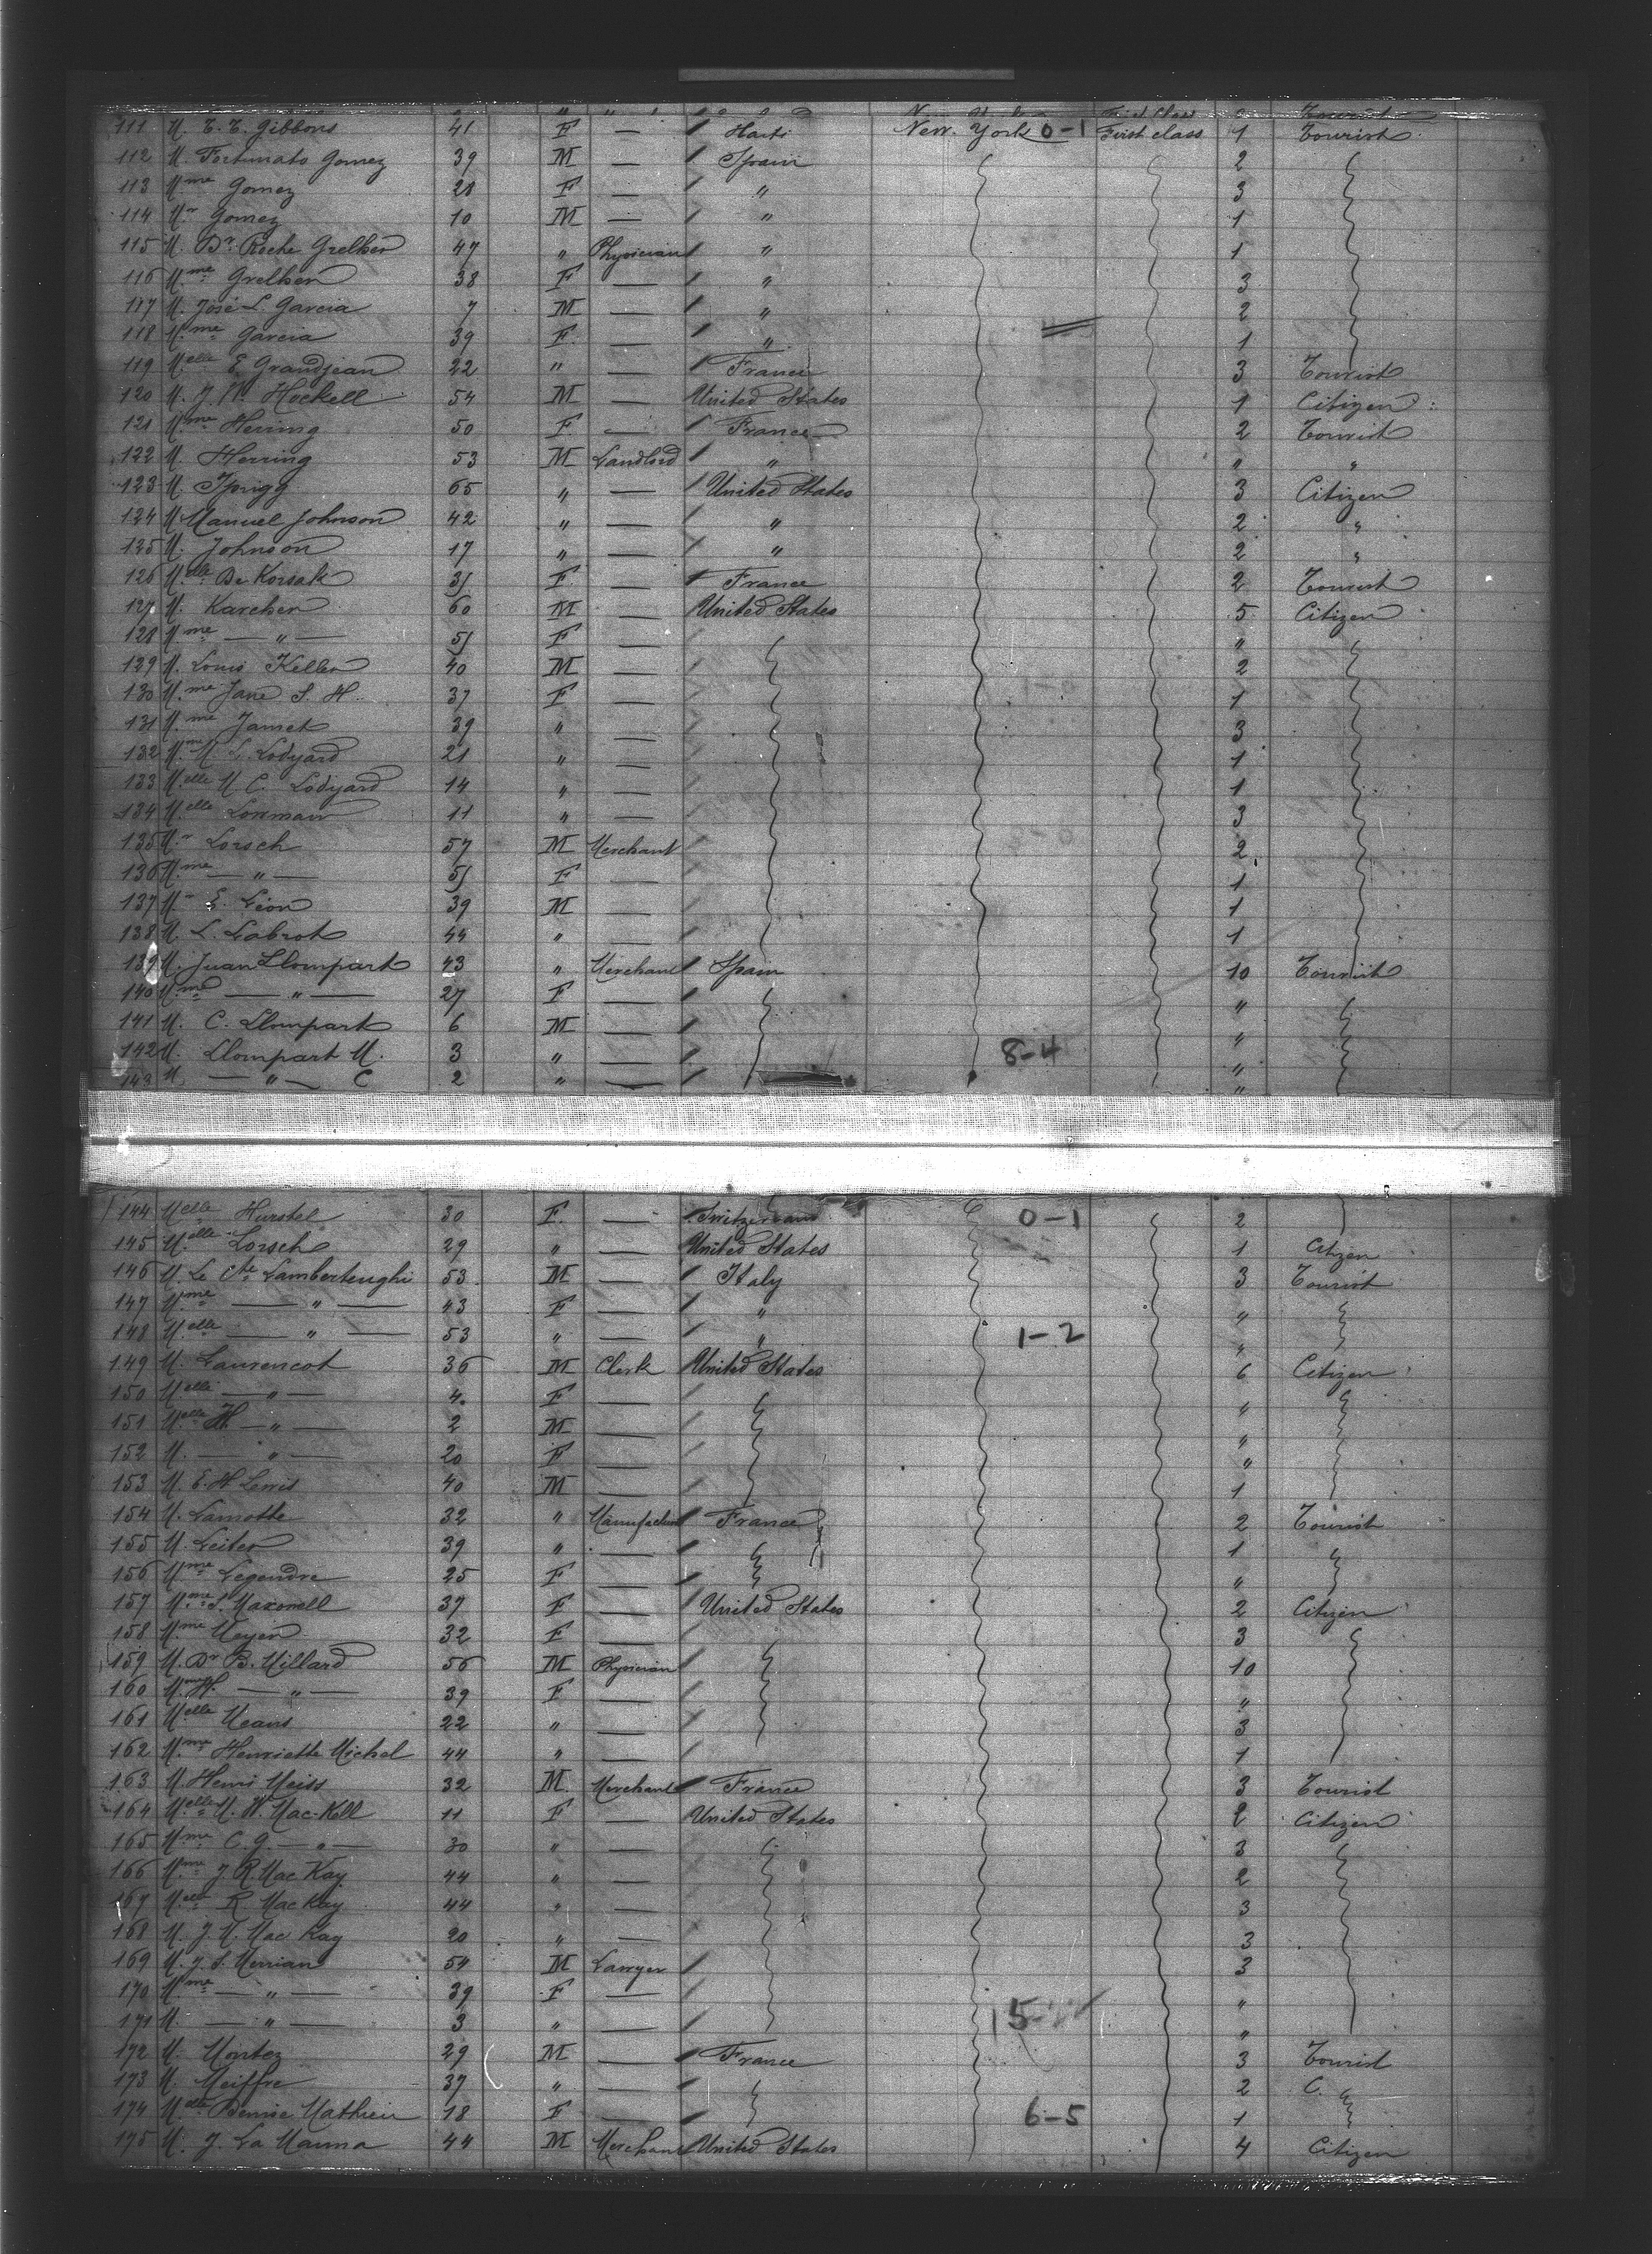 111 M. E. E. Gibbons 41 F — Haiti New York 0-1 First class 1 Tourist
112 M. Fortunato Gomez 39 M — Spain 2
113 Mme Gomez 28 F — " 3
114 Mr Gomez 10 M — " 1
115 M. Dr Roche Grelher 47 " Physician " 1
116 Mme Grelher 38 F — " 3
117 M. José L. Garcia 7 M — " 2
118 Mme Garcia 39 F — " 1
119 Melle E. Grandjean 22 " — France 3 Tourist
120 M. J. W. Hockell 54 M — United States 1 Citizen
121 Mme Herring 50 F — France 2 Tourist
122 M Herring 53 M Landlord " " "
123 M. 65 " — United States 3 Citizen
124 M Manuel Johnson 42 " — " 2 "
125 M. Johnson 17 " — " 2 "
126 Melle De Korsak F — France 2 Tourist
127 M. Karcher 60 M — United States 5 Citizen
128 Mme — " — F — "
129 M. Louis Keller 40 M — 2
130 Mme Jane S. H. 37 F — 1
131 Mme Jamet 39 " — 3
132 Mme M L. Lodyard 21 " — 1
133 Melle M C. Lodyard 14 " — 1
134 Melle Lorman 11 " — 3
135 Mr Lorsch 57 M Merchant 2
136 Mme — " — F — 1
137 Mr E. Léon 39 M — 1
138 M. L. Labrot 44 " — 1
139 M. Juan Llompart 43 " Merchant Spain 10 Tourist
140 Mme — " — 27 F — "
141 M. C. Llompart 6 M — "
142 M. Llompart M. 3 " — 8-4 "
143 M — " — C 2 " — "
144 Melle Hurstel 30 F. — 0-1 2
145 Melle Lorsch 29 " — United States 1 Citizen
146 M. Le Cte Lambertenghi 53 M — Italy 3 Tourist
147 Mme — " — 43 F — " "
148 Melle — " — 53 " — " 1-2 "
149 M. Laurencot 36 M Clerk United States 6 Citizen
150 Melle — " — 4 F — "
151 Melle H. — " — 2 M — "
152 M. — " — 20 F — "
153 M. E. H Lewis 40 M — 1
154 M. Lamotte 32 " Manufacturer France 2 Tourist
155 M. Leiter 39 " — 1
156 Mme Legendre 25 F — "
157 Mme S. Maxwell 37 F — United States 2 Citizen
158 Mme Meyer 32 F — 3
159 M. Dr B. Millard 56 M Physician 10
160 Mme H. — " — 39 F — "
161 Melle Means 22 " — 3
162 Mme Henriette Michel 44 " — 1
163 M. Henri Meiss 32 M. Merchant France 3 Tourist
164 Melle M. W. Mac-Kell 11 F — United States 2 Citizen
165 Mme C. G. — " — 30 " — 3
166 Mme J. R. Mac Kay 44 " — 2
167 Melle R. Mac Kay 44 " — 3
168 M. J. W. Mac Kay 20 " — 3
169 M. J. S. Merrian 54 M Lawyer 3
170 Mme — " — 39 F — "
171 M. — " — 3 " — 15- "
172 M. Montez 29 M — France 3 Tourist
173 M. Meiffre 37 " — 2 C.
174 Melle Denise Mathieu 18 F — 6-5 1
175 M. J. La Manna 44 M Merchant United States 4 Citizen